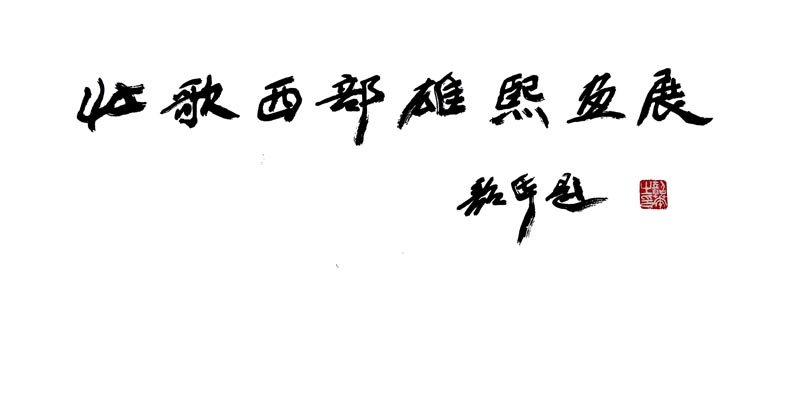 壮歌西部雄熙画展
题